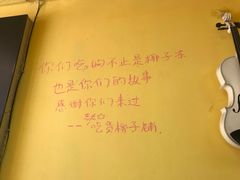 你们吃的不止是椰子冻
也是你们的故事
感谢你们来过
--吃货椰子铺